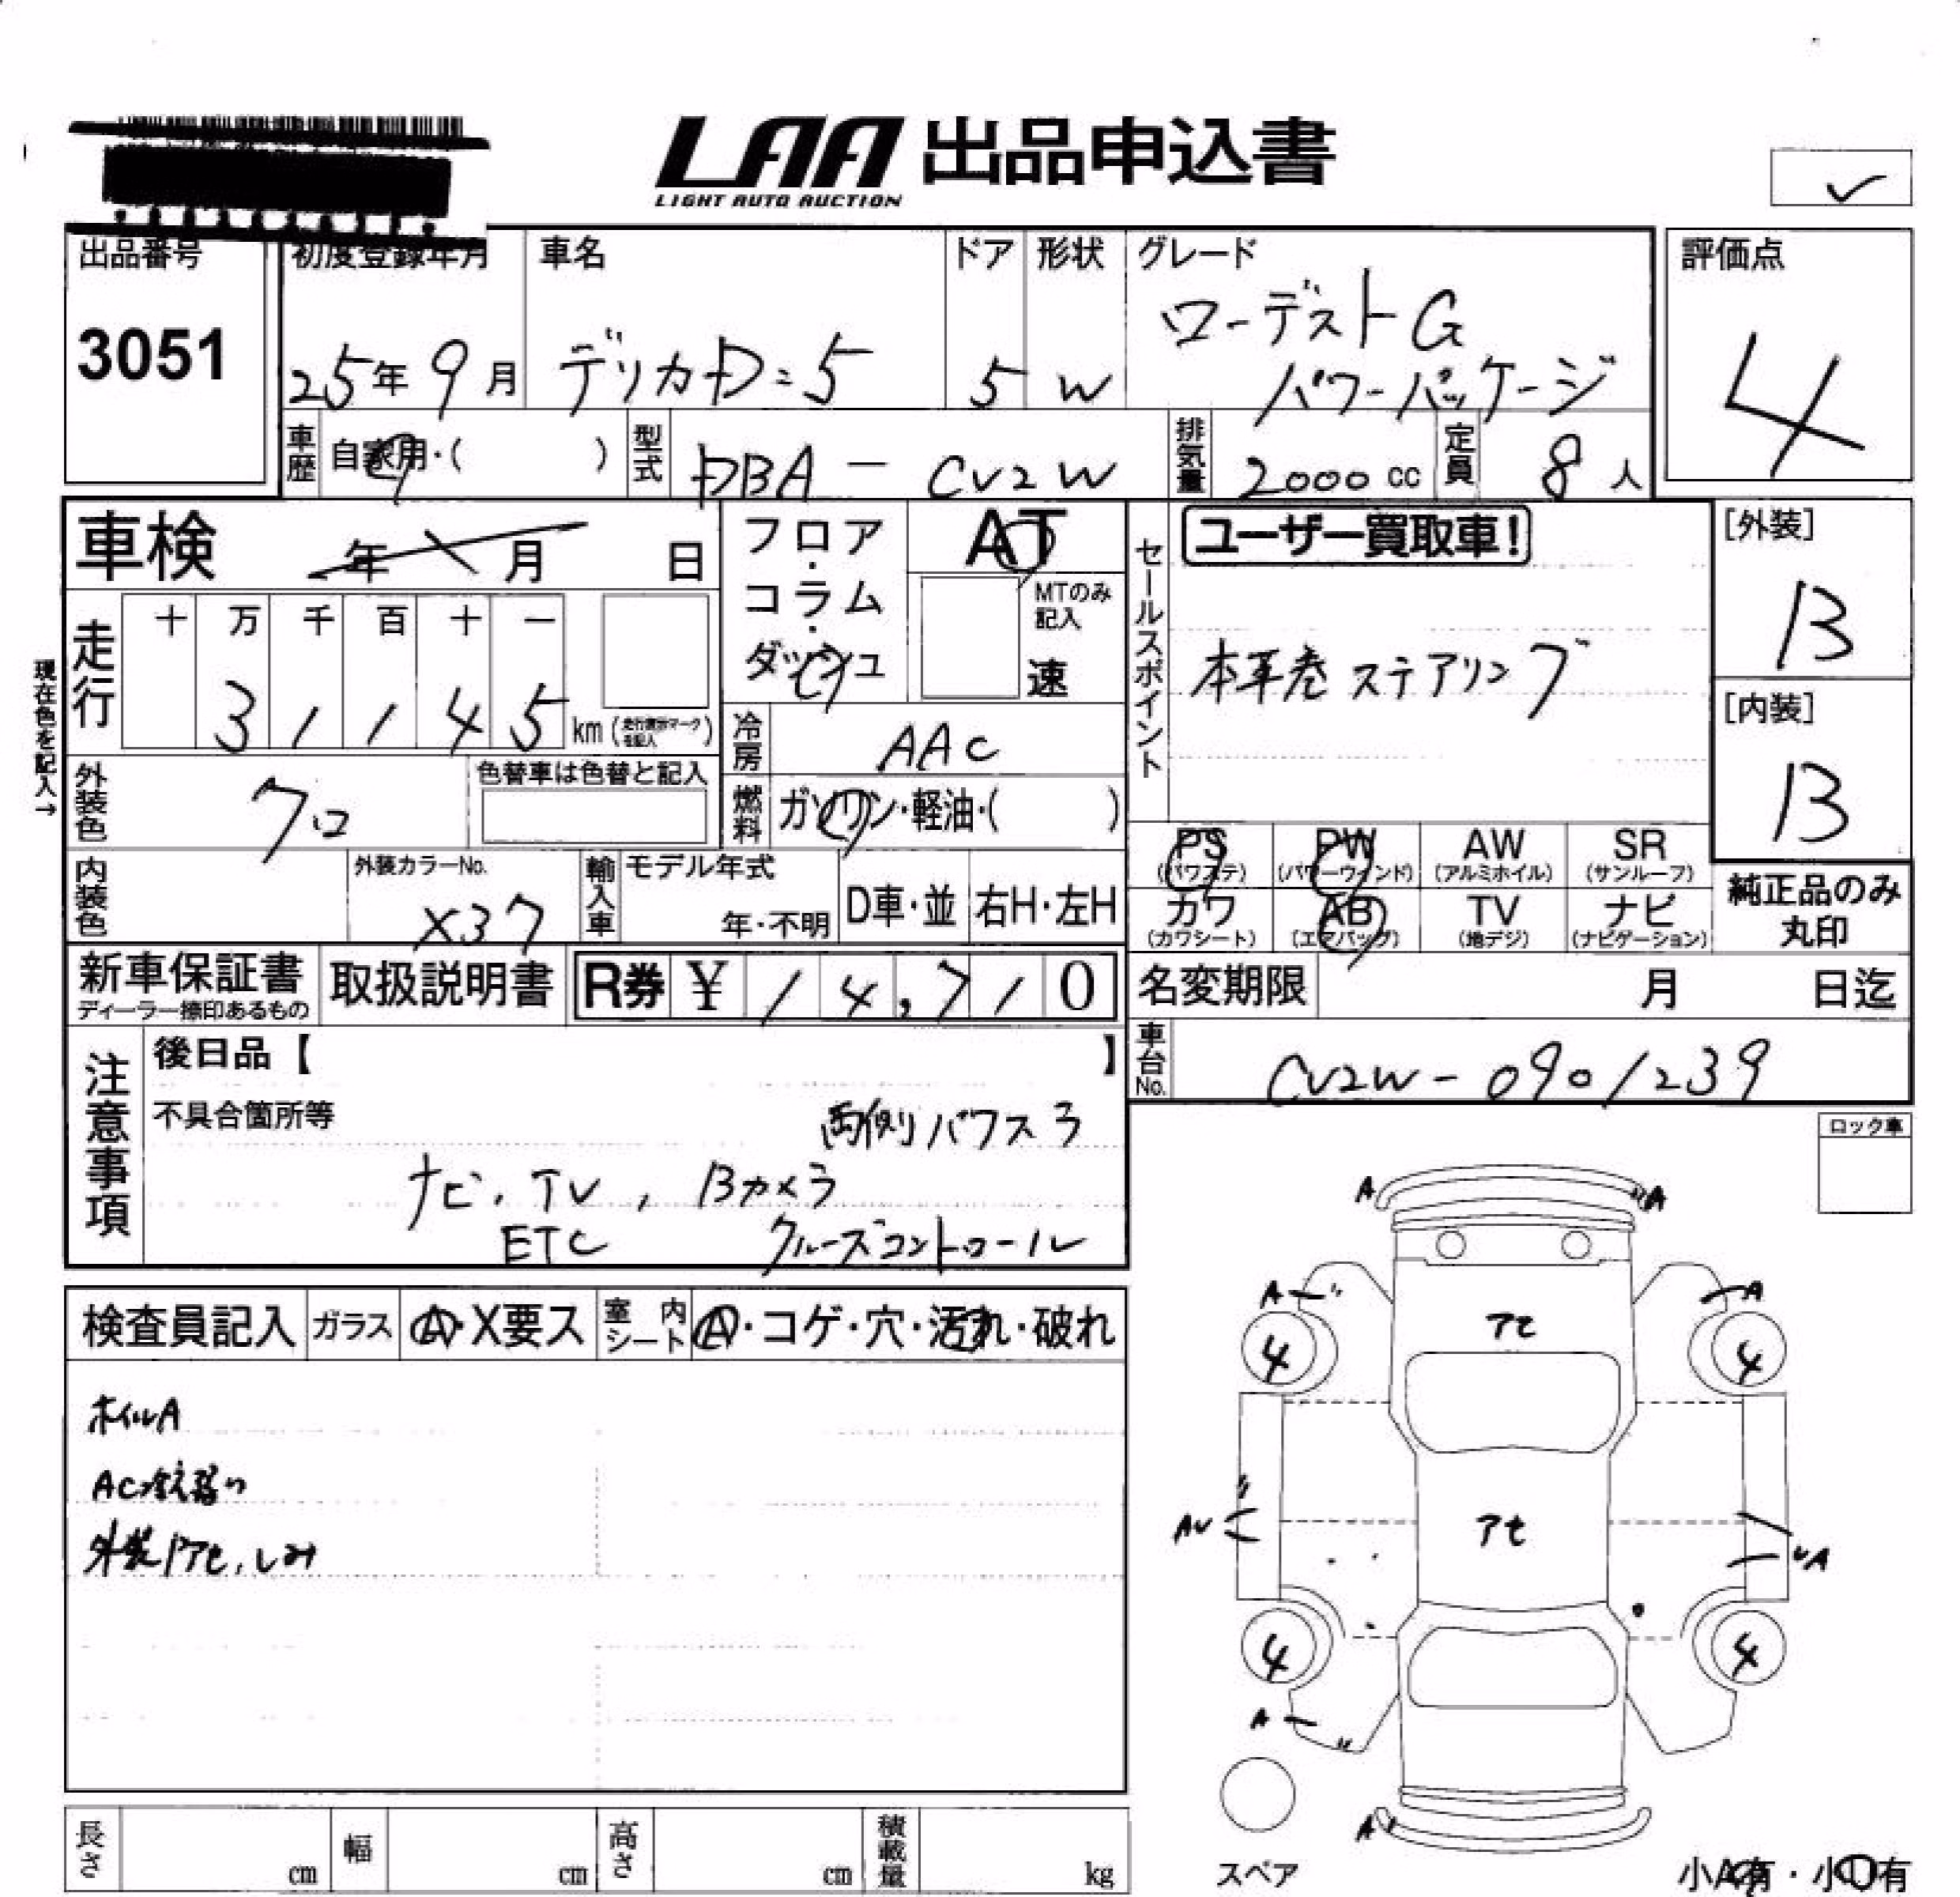 LAA 出品申込書
LIGHT AUTO AUCTION
✓
出品番号
3051
初度登録年月
25年 9月
車名
デリカD:5
ドア
5
形状
W
グレード
ローデストG
パワーパッケージ
評価点
4
車歴 自家用・( )
型式 DBA - CV2W
排気量 2000 cc
定員 8 人
車検 年 月 日
フロア・コラム・ダッシュ
AT
MTのみ記入
速
セールスポイント
ユーザー買取車!
本革巻ステアリング
[外装]
B
[内装]
B
現在色を記入→
走行
十 万 千 百 十 一
3 1 1 4 5 km
冷房 AAC
外装色 クロ
色替車は色替と記入
燃料 ガソリン・軽油・( )
PS (パワステ)
PW (パワーウィンド)
AW (アルミホイル)
SR (サンルーフ)
カワ (カワシート)
AB (エアバッグ)
TV (地デジ)
ナビ (ナビゲーション)
純正品のみ
丸印
内装色
外装カラーNo.
X37
輸入車 モデル年式
年・不明
D車・並
右H・左H
新車保証書
ディーラー捺印あるもの
取扱説明書
R券 ¥ 14,710
名変期限 月 日迄
車台No. CV2W-0901239
注意事項
後日品【 】
不具合箇所等
両側パワスラ
ナビ、TV、Bカメラ
ETC クルーズコントロール
ロック車
検査員記入
ガラス A・X要ス
室内シート A・コゲ・穴・汚れ・破れ
ホイルA
AC冷え弱い
外装アセ、しみ
A A
A A
アセ
4 4
アセ
AU UA
4 4
A
A
スペア
小A有・小U有
長さ cm
幅 cm
高さ cm
積載量 kg